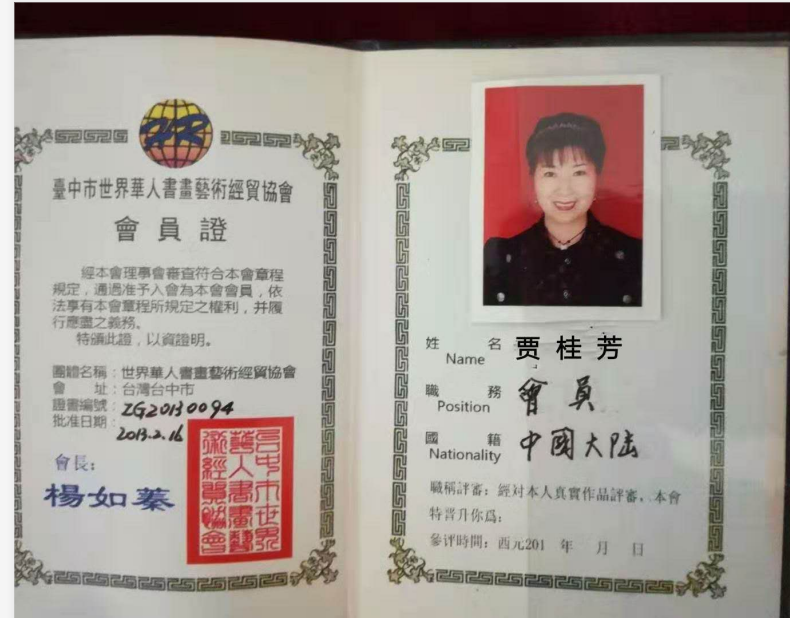 HR
臺中市世界華人書畫藝術經貿協會
會員證
經本會理事會審查符合本會章程
規定，通過准予入會為本會會員，依
法享有本會章程所規定之權利，并履
行應盡之義務。
特頒此證，以資證明。
團體名稱：世界華人書畫藝術經貿協會
會 址：台灣台中市
證書編號：ZG20130094
批准日期：
2013.2.16
會長：
楊如蓁
台中市世界
華人書畫藝
術經貿協會
姓 名 贾桂芳
Name
職 務 會員
Position
國 籍 中國大陆
Nationality
職稱評審：經对本人真實作品評審、本會
特晋升你爲：
參评時間：西元201 年 月 日